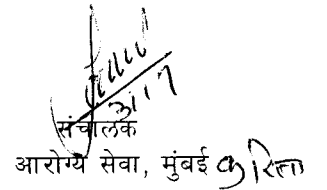 संचालक
आरोग्य सेवा, मुंबई करिता